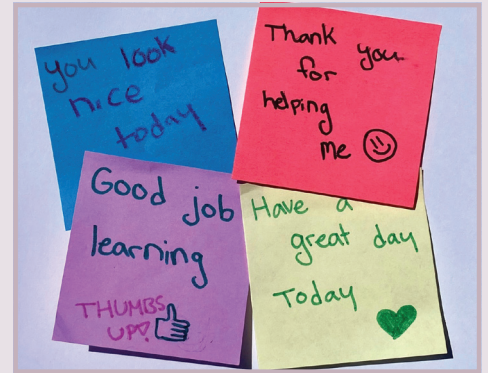 you look
nice
today
Thank you
for
helping
me
Good job
learning
THUMBS
UP!
Have a
great day
Today